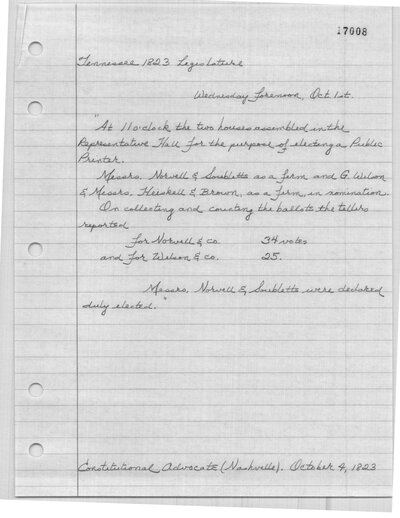 17008
Tennessee 1823 Legislature
Wednesday Forenoon, Oct. 1st.
"At 11 o'clock the two houses assembled in the
Representative Hall for the purpose of electing a Public
Printer.
Messrs. Norvell & Soubletts as a firm and G. Wilson
& Messrs. Heiskell & Brown, as a firm, in nomination.
On collecting and counting the ballots the tellers
reported
For Norvell & co. 34 votes
and for Wilson & co. 25.
Messrs. Norvell & Soubletts were declared
duly elected."
Constitutional Advocate (Nashville). October 4, 1823